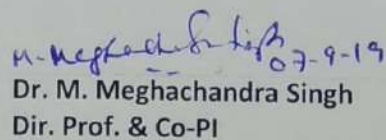 M. Meghachandra Singh
07-9-19
Dr. M. Meghachandra Singh
Dir. Prof. & Co-PI